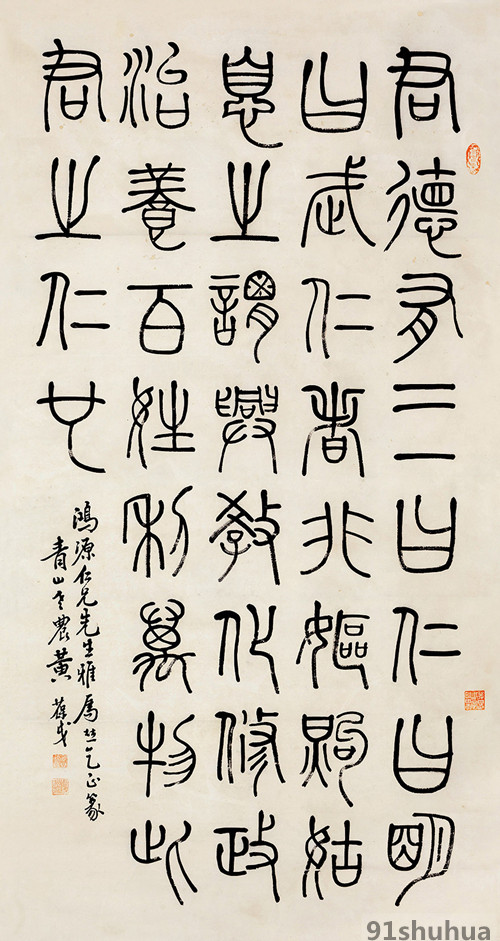 君德有三曰仁曰明
曰武仁者非嫗煦姑
息之謂興教化修政
治養百姓利萬物此
君之仁也
鴻源仁兄先生雅屬並乞正篆
青山老農黃葆戉
91shuhua